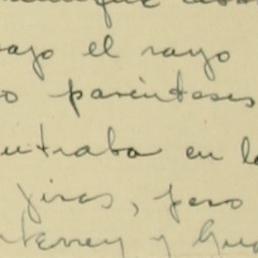 bajo el rayo
o paréntesis
ntraba en la
jiras, pero
nterrey y Gua